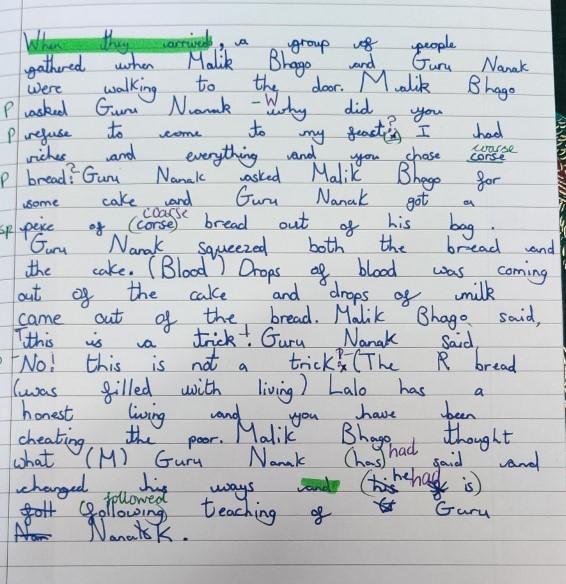 When they arrived, a group of people
gathered when Malik Bhago and Guru Nanak
were walking to the door. Malik Bhago
P asked Guru Nanak - Why did you
P refuse to come to my feast? I had
riches and everything and you chose coarse corse
P bread? Guru Nanak asked Malik Bhago for
some cake and Guru Nanak got a
sp peice of coarse (corse) bread out of his bag.
Guru Nanak squeezed both the bread and
the cake. (Blood) Drops of blood was coming
out of the cake and drops of milk
came out of the bread. Malik Bhago said,
This is a trick! Guru Nanak said,
-No! this is not a trick (The R bread
(was filled with living) Lalo has a
honest living and you have been
cheating the poor. Malik Bhago thought
what (M) Guru Nanak (has) had said and
changed his ways and (his he had is)
followed (following) teaching of Guru
Nanak.